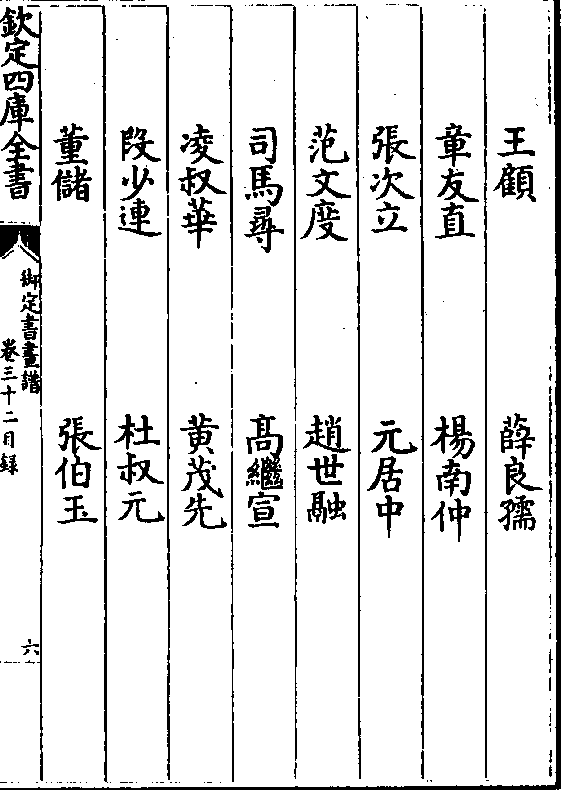 王顧 薛良孺
章友直 楊南仲
張次立 元居中
范文度 趙世融
司馬尋 髙繼宣
凌叔華 黄茂先
段少連 杜叔元
董儲 張伯玉
欽定四庫全書
御定書畫譜
卷三十二目録
六